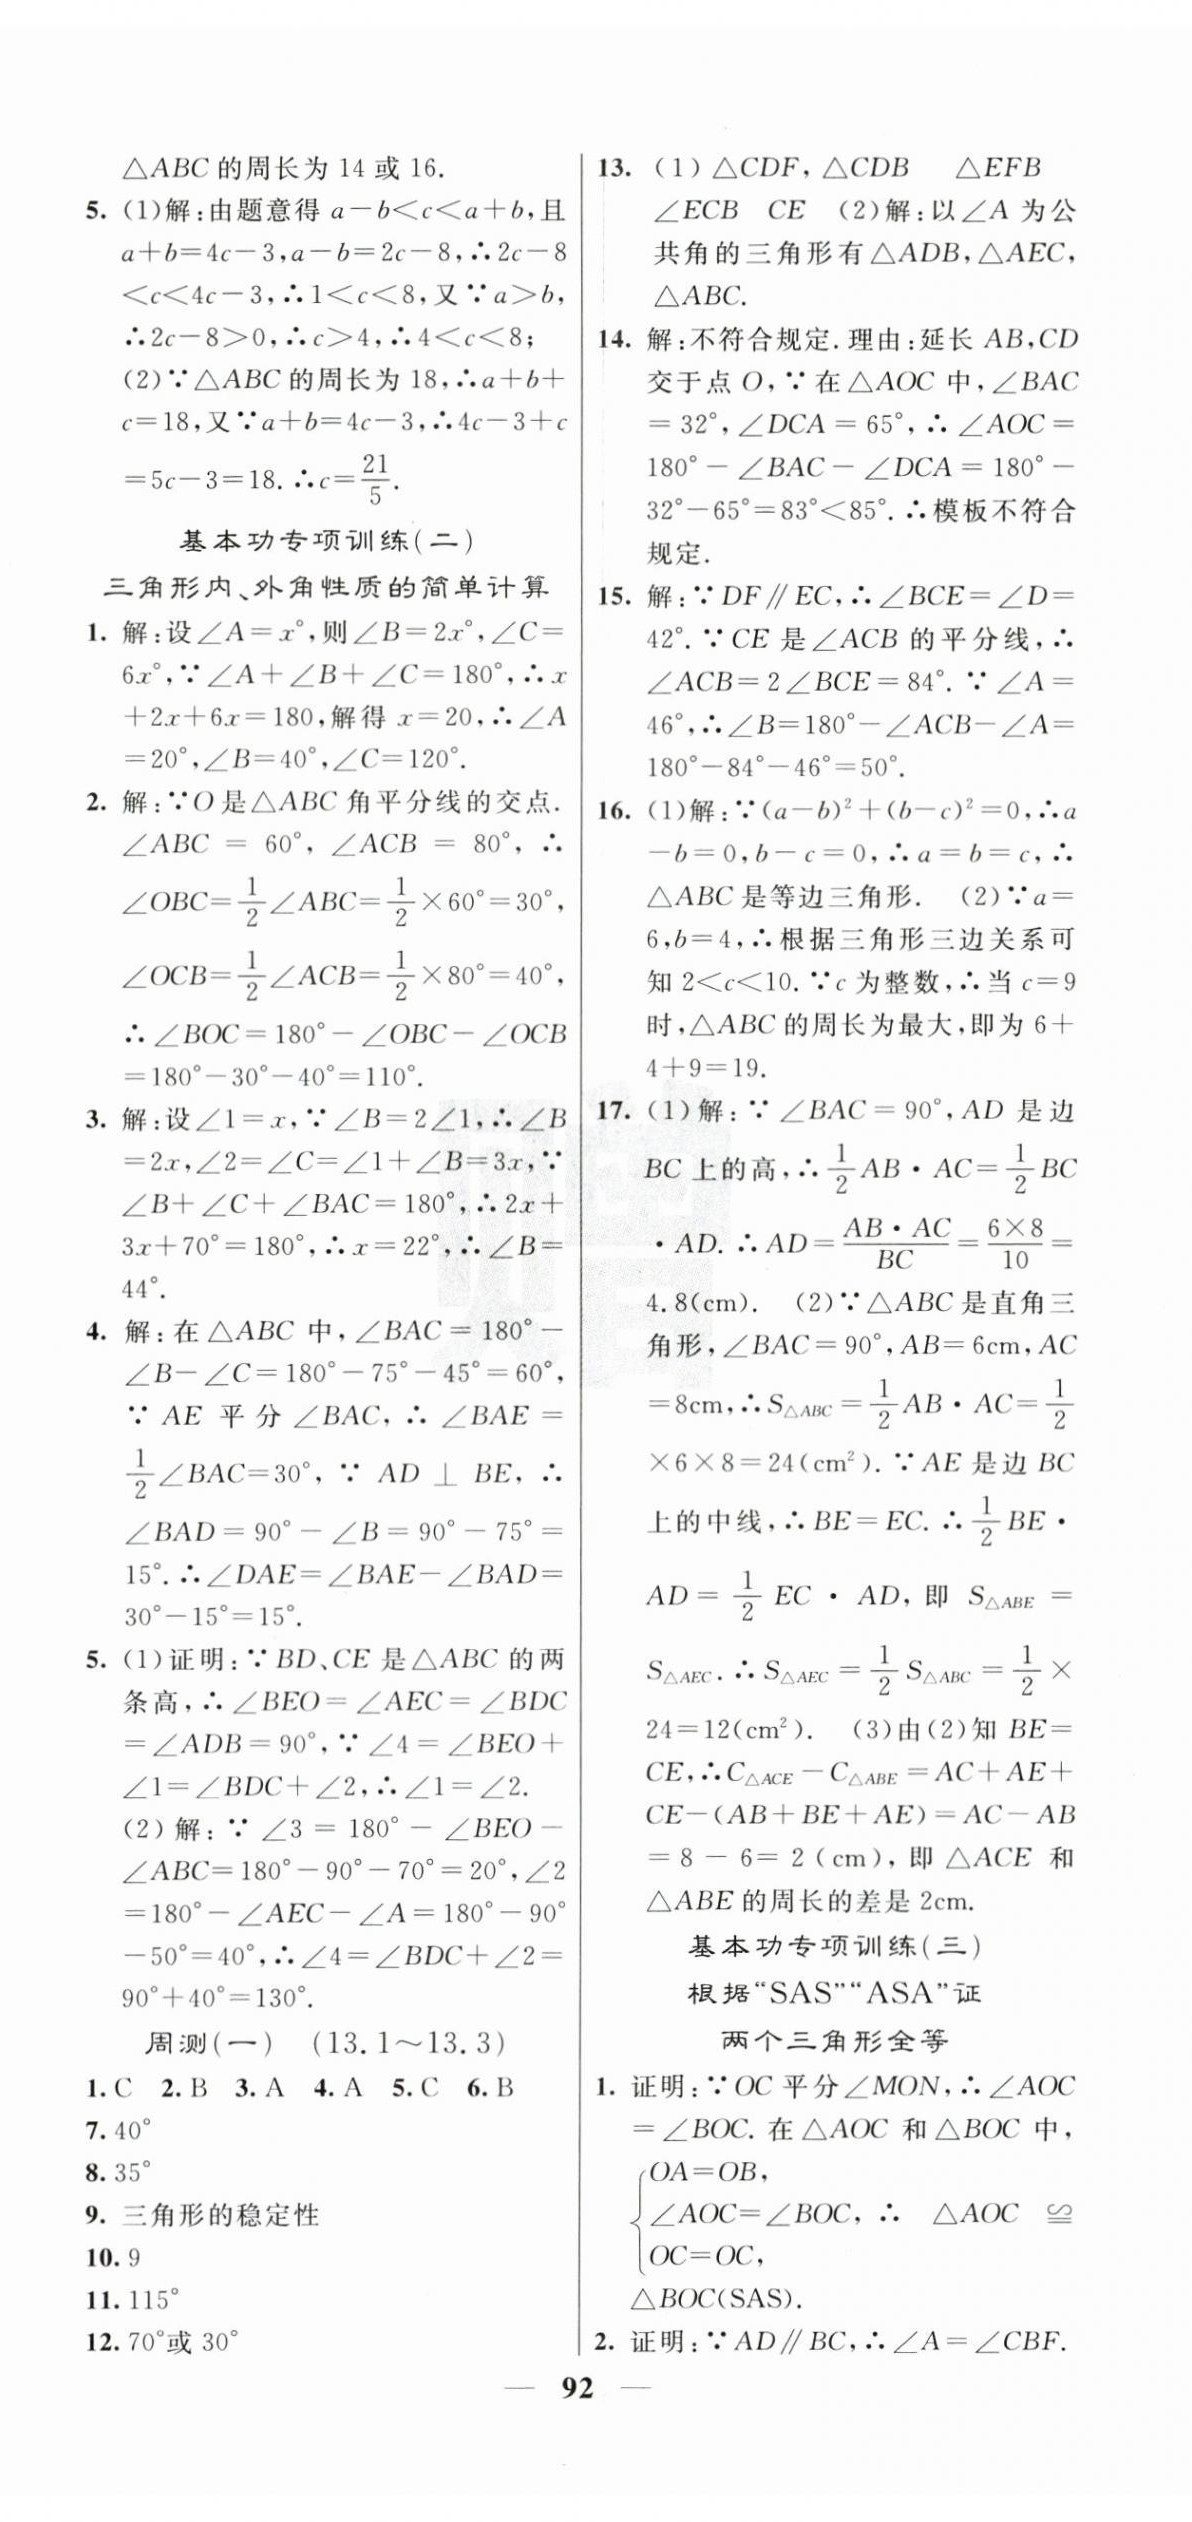 △ABC 的周长为 14 或 16.
5. (1)解:由题意得 a-b<c<a+b,且
a+b=4c-3,a-b=2c-8,∴2c-8
<c<4c-3,∴1<c<8,又∵a>b,
∴2c-8>0,∴c>4,∴4<c<8;
(2)∵△ABC 的周长为 18,∴a+b+
c=18,又∵a+b=4c-3,∴4c-3+c
=5c-3=18. ∴c=21/5.
基本功专项训练(二)
三角形内、外角性质的简单计算
1. 解:设∠A=x°,则∠B=2x°,∠C=
6x°,∵∠A+∠B+∠C=180°,∴x
+2x+6x=180,解得 x=20,∴∠A
=20°,∠B=40°,∠C=120°.
2. 解:∵O是△ABC 角平分线的交点.
∠ABC = 60°, ∠ACB = 80°, ∴
∠OBC=1/2∠ABC=1/2×60°=30°,
∠OCB=1/2∠ACB=1/2×80°=40°,
∴∠BOC=180°-∠OBC-∠OCB
=180°-30°-40°=110°.
3. 解:设∠1=x,∵∠B=2∠1,∴∠B
=2x,∠2=∠C=∠1+∠B=3x,∵
∠B+∠C+∠BAC=180°,∴2x+
3x+70°=180°,∴x=22°,∴∠B=
44°.
4. 解:在△ABC 中,∠BAC=180°-
∠B-∠C=180°-75°-45°=60°,
∵ AE 平分∠BAC, ∴ ∠BAE =
1/2∠BAC=30°, ∵ AD ⊥ BE, ∴
∠BAD=90°-∠B=90°-75°=
15°.∴∠DAE=∠BAE-∠BAD=
30°-15°=15°.
5. (1)证明:∵BD、CE 是△ABC 的两
条高,∴∠BEO=∠AEC=∠BDC
=∠ADB=90°,∵∠4=∠BEO+
∠1=∠BDC+∠2,∴∠1=∠2.
(2) 解: ∵ ∠3 = 180° - ∠BEO -
∠ABC=180°-90°-70°=20°,∠2
=180°-∠AEC-∠A=180°-90°
-50°=40°,∴∠4=∠BDC+∠2=
90°+40°=130°.
周测(一) (13.1～13.3)
1. C 2. B 3. A 4. A 5. C 6. B
7. 40°
8. 35°
9. 三角形的稳定性
10. 9
11. 115°
12. 70°或 30°
13. (1) △CDF, △CDB △EFB
∠ECB CE (2)解:以∠A 为公
共角的三角形有△ADB,△AEC,
△ABC.
14. 解:不符合规定.理由:延长 AB,CD
交于点 O,∵在△AOC 中,∠BAC
=32°,∠DCA=65°,∴∠AOC=
180°-∠BAC-∠DCA=180°-
32°-65°=83°<85°.∴模板不符合
规定.
15. 解:∵DF∥EC,∴∠BCE=∠D=
42°.∵CE 是∠ACB 的平分线,∴
∠ACB=2∠BCE=84°. ∵∠A=
46°,∴∠B=180°-∠ACB-∠A=
180°-84°-46°=50°.
16. (1)解:∵(a-b)²+(b-c)²=0,∴a
-b=0,b-c=0,∴a=b=c,∴
△ABC 是等边三角形. (2)∵a=
6,b=4,∴根据三角形三边关系可
知 2<c<10.∵c 为整数,∴当 c=9
时,△ABC 的周长为最大,即为 6+
4+9=19.
17. (1)解:∵∠BAC=90°,AD 是边
BC 上的高,∴1/2AB·AC=1/2BC
·AD. ∴AD=AB·AC/BC=6×8/10=
4.8(cm). (2)∵△ABC 是直角三
角形,∠BAC=90°,AB=6cm,AC
=8cm,∴S△ABC=1/2AB·AC=1/2
×6×8=24(cm²).∵AE 是边 BC
上的中线,∴BE=EC.∴1/2BE·
AD=1/2 EC·AD,即 S△ABE=
S△AEC.∴S△AEC=1/2S△ABC=1/2×
24=12(cm²). (3)由(2)知 BE=
CE,∴C△ACE-C△ABE=AC+AE+
CE-(AB+BE+AE)=AC-AB
=8-6=2(cm),即△ACE 和
△ABE 的周长的差是 2cm.
基本功专项训练(三)
根据“SAS”“ASA”证
两个三角形全等
1. 证明:∵OC 平分∠MON,∴∠AOC
=∠BOC. 在△AOC 和△BOC 中,
OA=OB,
∠AOC=∠BOC, ∴ △AOC ≌
OC=OC,
△BOC(SAS).
2. 证明:∵AD∥BC,∴∠A=∠CBF.
— 92 —